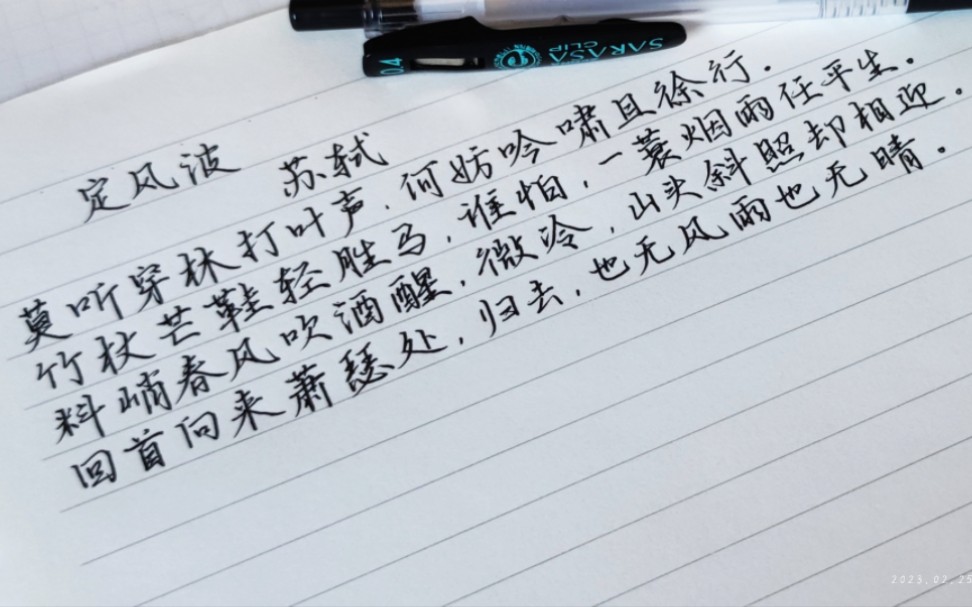 SARASA
CLIP
04
定风波 苏轼
莫听穿林打叶声,何妨吟啸且徐行.
竹杖芒鞋轻胜马,谁怕,一蓑烟雨任平生.
料峭春风吹酒醒,微冷,山头斜照却相迎.
回首向来萧瑟处,归去,也无风雨也无晴.
2023.02.25